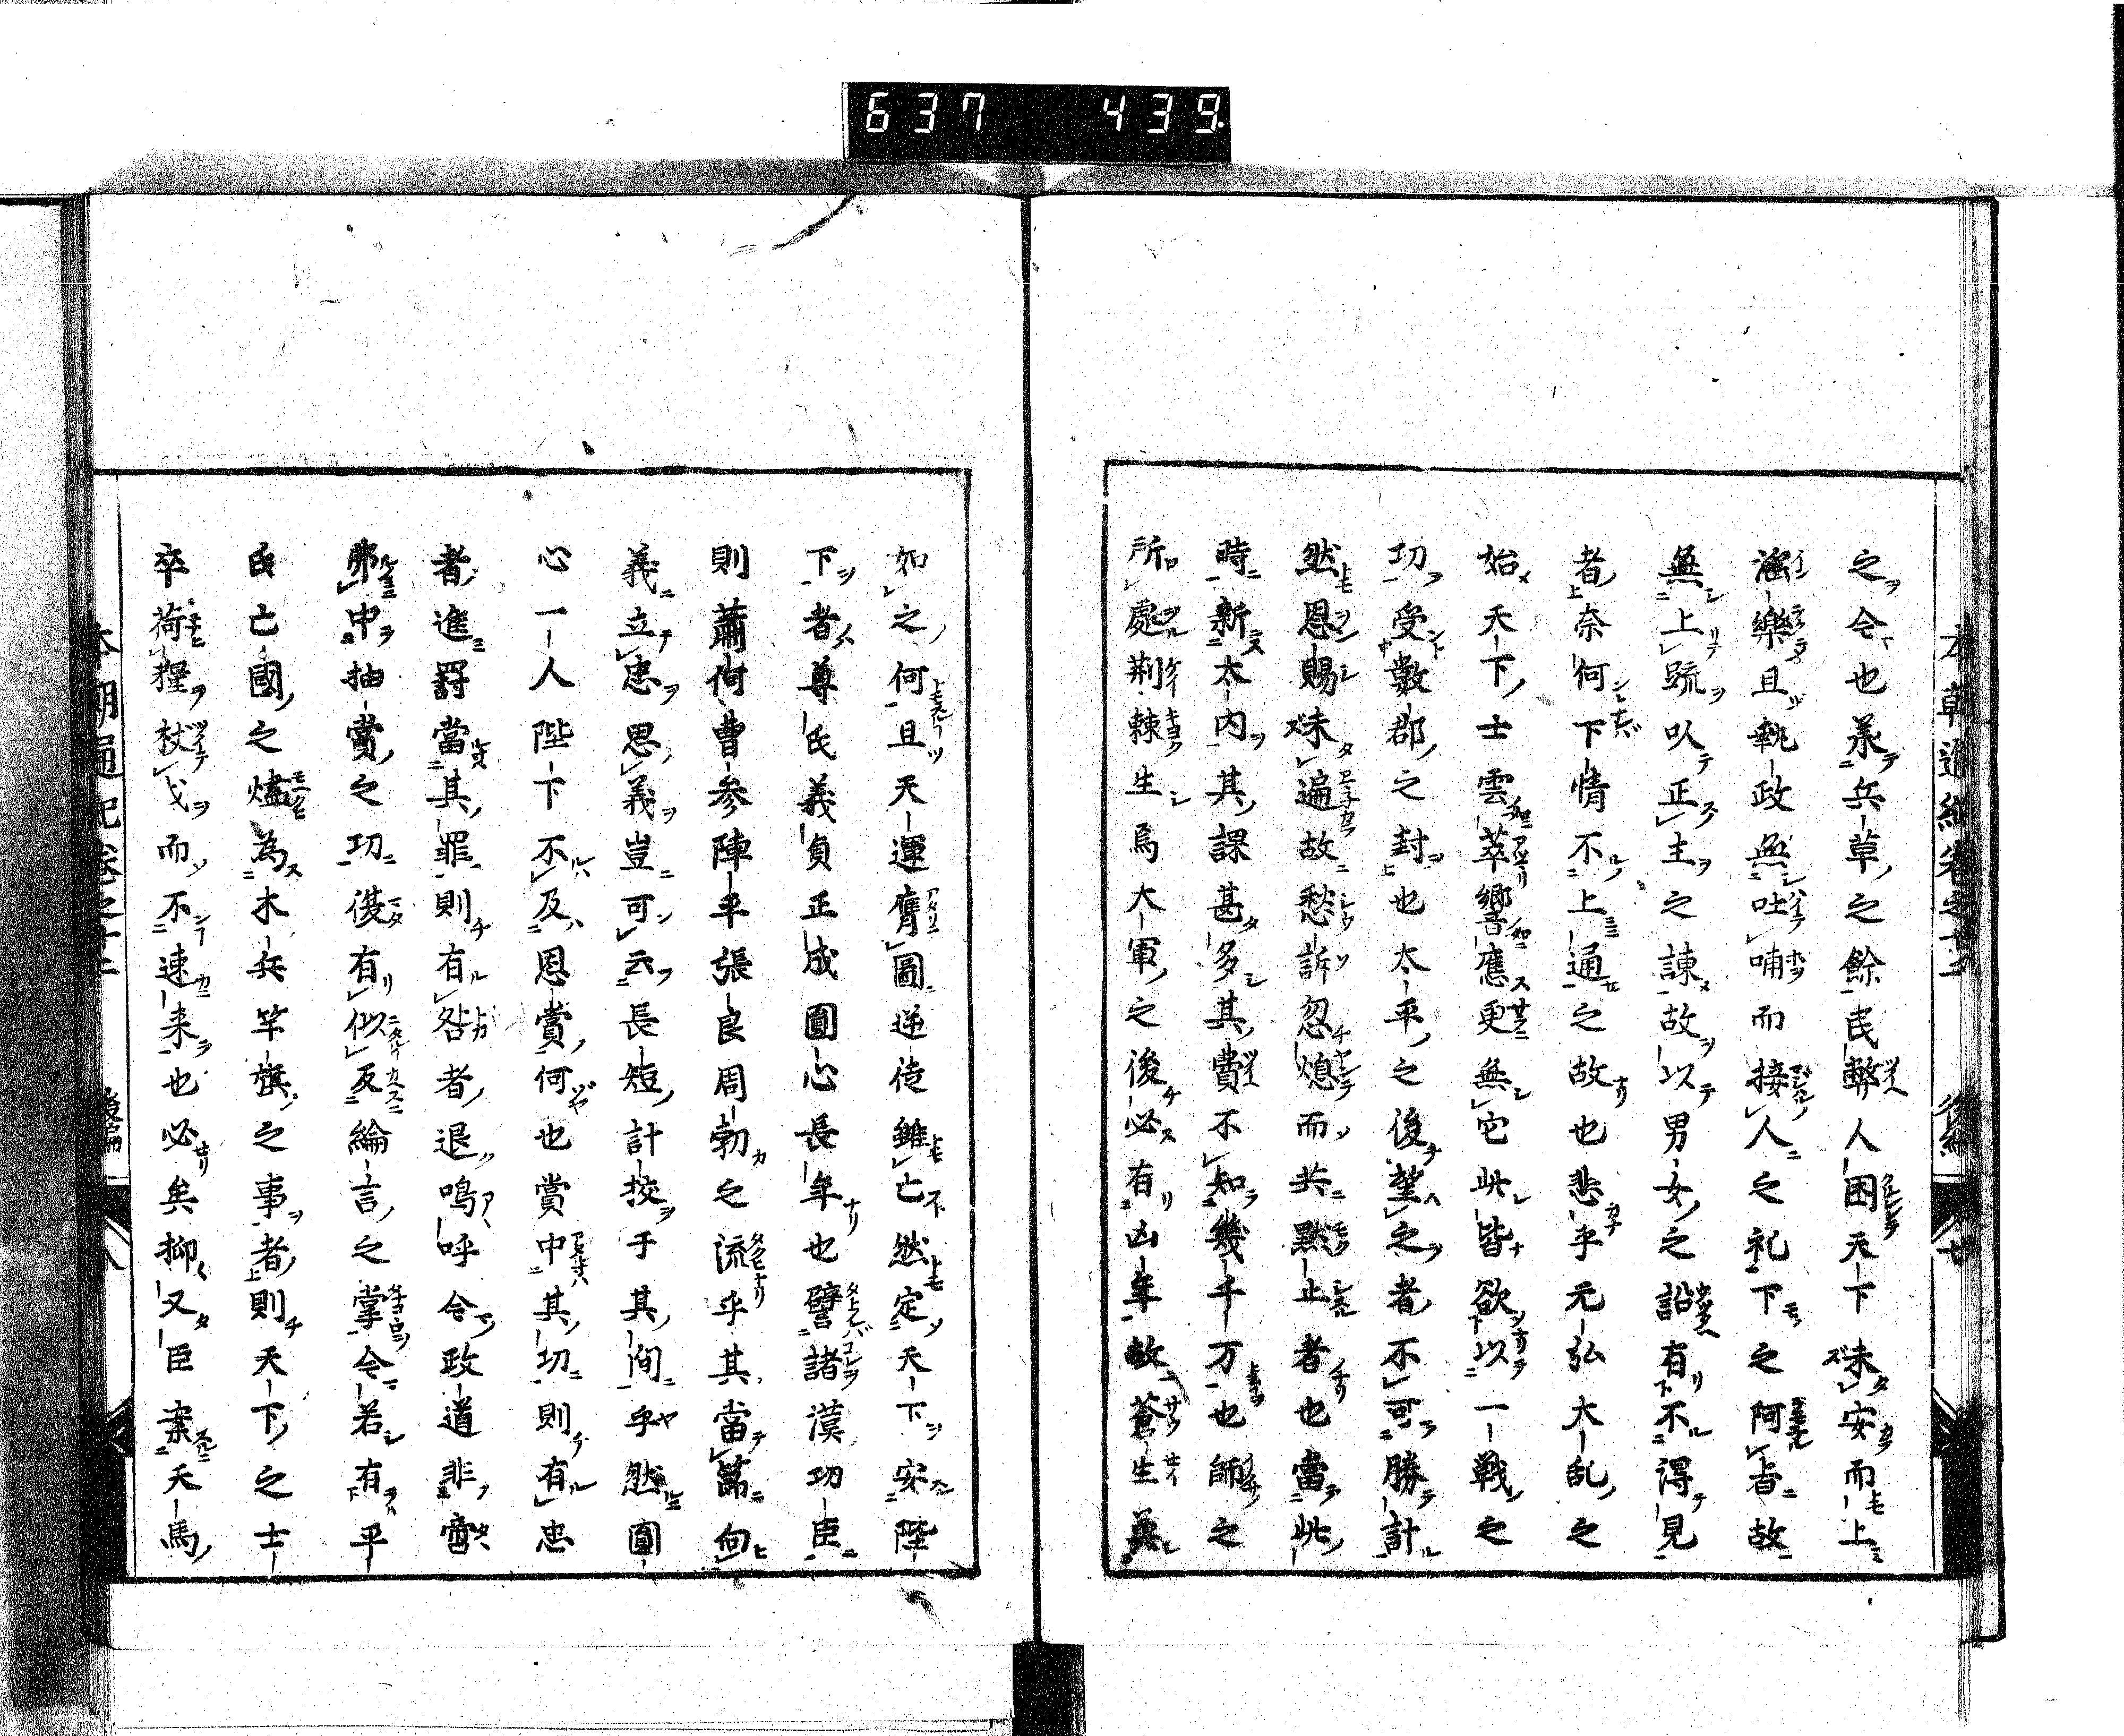 637 439.
本朝通紀卷之十二 後編 廿
之令也承兵草之餘民弊人困天下未安而上
淫樂且執政無吐哺而接人之礼下之阿旨故
無上䟽以正主之諌故以男女之謟有不得見
者奈何下情不上通之故也悲乎元弘大乱之
始天下士雲萃響應更無它此皆欲以一戦之
功受數郡之封也太平之後望之者不可勝計
然恩賜未遍故愁訴忽熄而共黙止者也當此
時新太内其課甚多其費不知幾千万也師之
所處荆棘生焉大軍之後必有凶年故蒼生
如之何且天運膺圖逆徒雖亡然定天下安陛
下者尊氏義貞正成圓心長年也譬諸漢功臣
則蕭何曹参陣平張良周勃之流乎其當第向
義立忠思義豈可云長短計挍于其間乎然圓
心一人陛下不及恩賞何也賞中其功則有忠
者進罸當其罪則有咎者退鳴呼今政道非啻
弗中抽賞之功復有似反綸言之掌令若有平
氏亡國之燼為木兵竿旗之事者則天下之士
卒荷糧杖戈而不速来也必矣抑又臣案天馬
本朝通紀卷之十二 後編